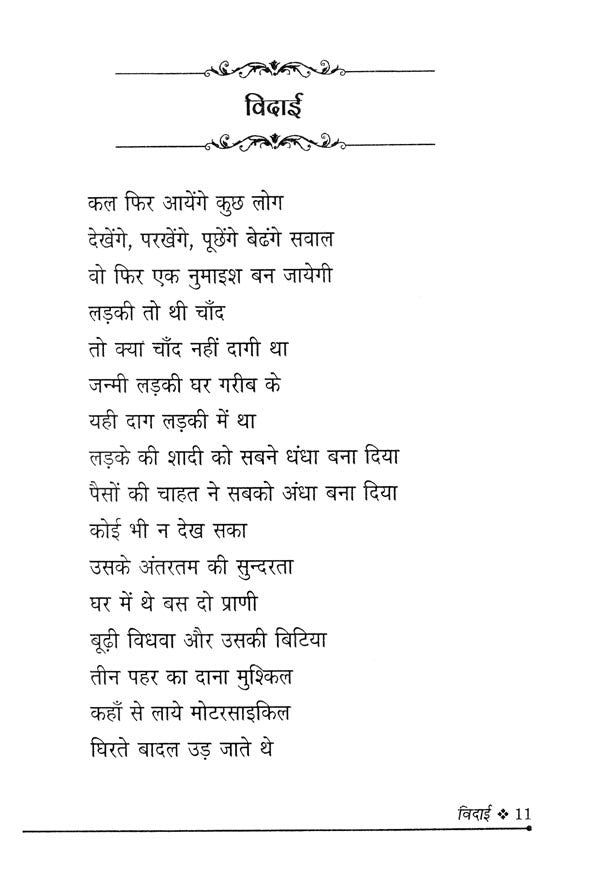 विदाई
कल फिर आयेंगे कुछ लोग
देखेंगे, परखेंगे, पूछेंगे बेढंगे सवाल
वो फिर एक नुमाइश बन जायेगी
लड़की तो थी चाँद
तो क्या चाँद नहीं दागी था
जन्मी लड़की घर गरीब के
यही दाग लड़की में था
लड़के की शादी को सबने धंधा बना दिया
पैसों की चाहत ने सबको अंधा बना दिया
कोई भी न देख सका
उसके अंतरतम की सुन्दरता
घर में थे बस दो प्राणी
बूढ़ी विधवा और उसकी बिटिया
तीन पहर का दाना मुश्किल
कहाँ से लाये मोटरसाइकिल
घिरते बादल उड़ जाते थे
विदाई ❖ 11